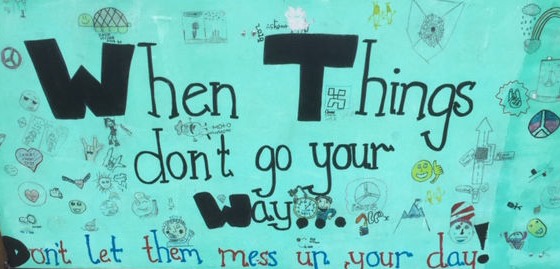 When Things
don't go your
Way...
Don't let them mess up your day!